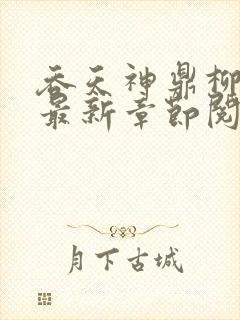 吞天神鼎柳
最新章节阅
月下古城